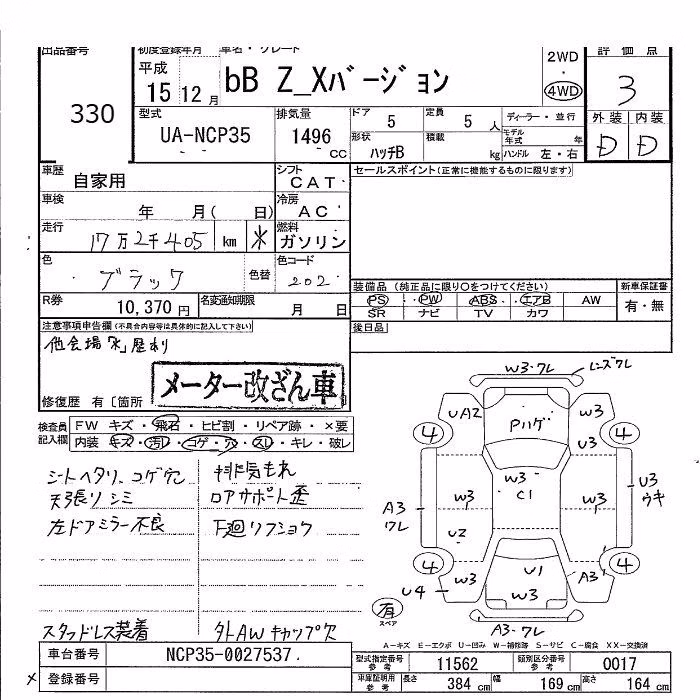 出品番号 330
初度登録年月 平成 15 12 月
車名・グレード bB Z_Xバージョン
2WD・4WD
評価点 3
型式 UA-NCP35
排気量 1496 CC
ドア 5
定員 5 人
形状 ハッチB
積載 kg
ディーラー・並行
モデル年式 年
ハンドル 左・右
外装 D
内装 D
車歴 自家用
シフト CAT
セールスポイント(正常に機能するものに限ります)
車検 年 月( 日)
冷房 AC
走行 17万2千405 km
燃料 ガソリン
色 ブラック 色替
色コード 202
装備品 (純正品に限り○をつけてください)
新車保証書 有・無
PS・PW・ABS・エアB AW
SR ナビ TV カワ
R券 10,370 円
名変通知期限 月 日
後日品
注意事項申告欄(不具合内容等は具体的に記入して下さい)
メーター改ざん車
修復歴 有〔箇所
検査員記入欄
FW キズ・飛石・ヒビ割・リペア跡・×要
内装 キズ・汚レ・コゲ・穴・スレ・キレ・破レ
シートヘタリ、コゲ穴
天張りシミ
左ドアミラー不良
スタッドレス装着
排気もれ
ロアサポート歪
下廻リフショク
外AWキャップ欠
W3・ワレ
レンズワレ
UA2
Pハゲ
W3
4
4
U3
W3
C1
A3
ワレ
W3
W3
U3
ウキ
U2
4
4
U4
W3
U1
A3
W3
有
スペア
A3・ワレ
A−キズ E−エクボ U−凹み W−補修跡 S−サビ C−腐食 XX−交換済
車台番号 NCP35-0027537.
型式指定番号 参考 11562
類別区分番号 参考 0017
登録番号
車庫証明用 参考 長さ 384 cm 幅 169 cm 高さ 164 cm